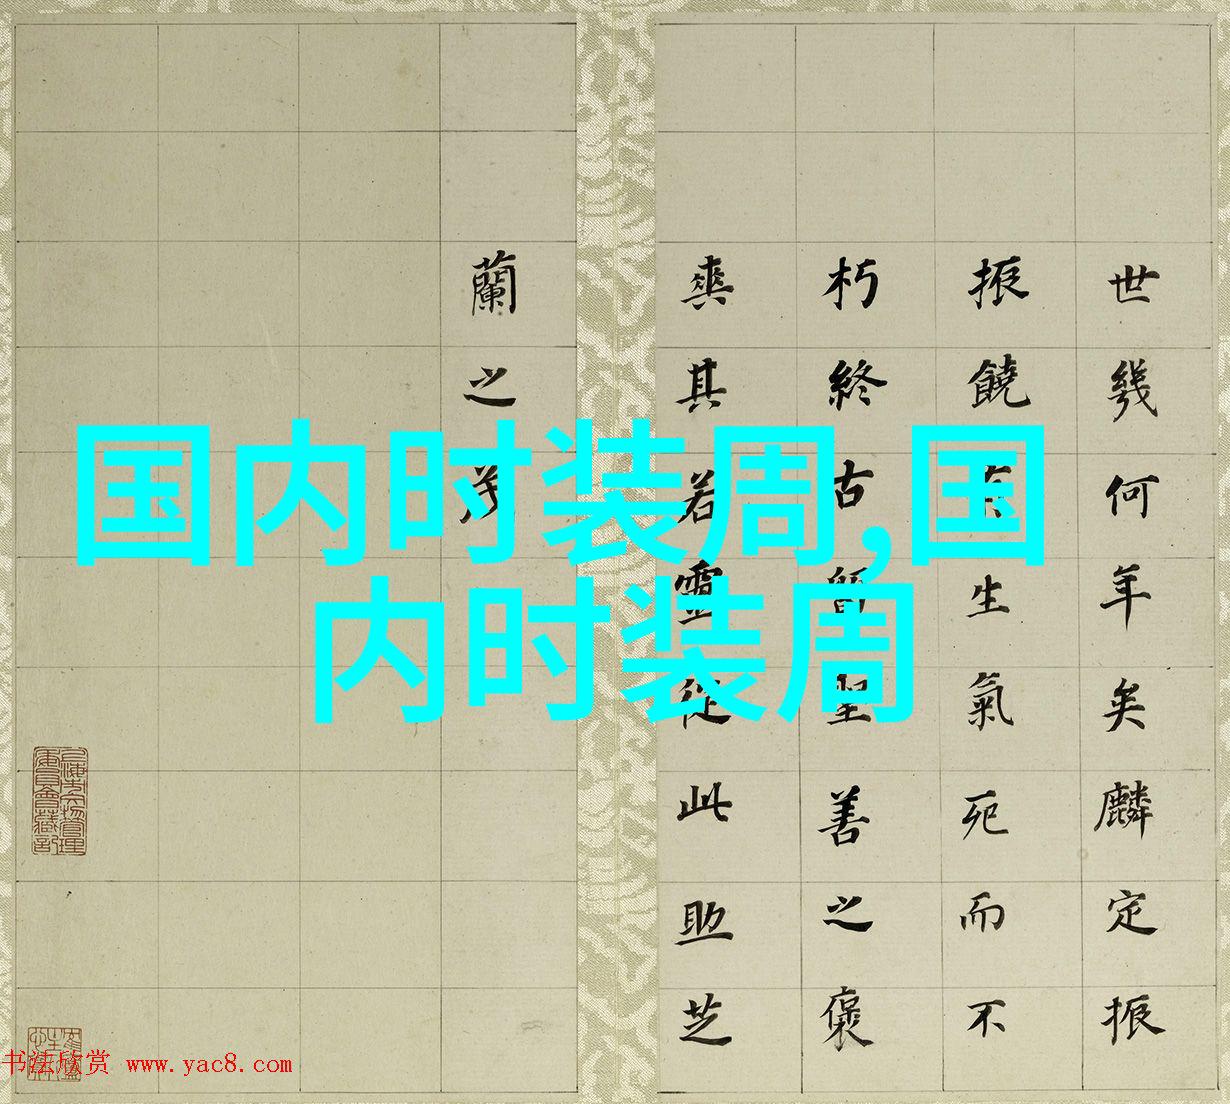 世幾何年矣麟定振
振饒生氣死而不
朽終古聖善之褒
爽其若靈從此助芝
蘭之
国内时装周,国
内时装周
书法欣赏 www.yac8.com